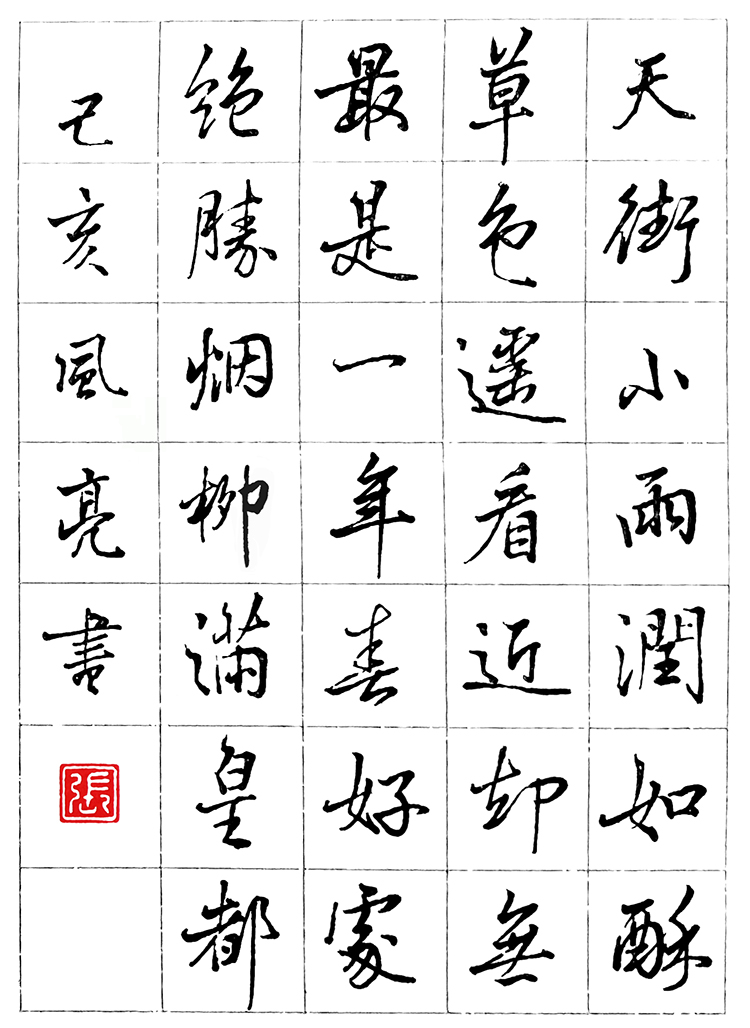 天街小雨潤如酥
草色遥看近却無
最是一年春好處
絶勝烟柳滿皇都
己亥風亮書
張